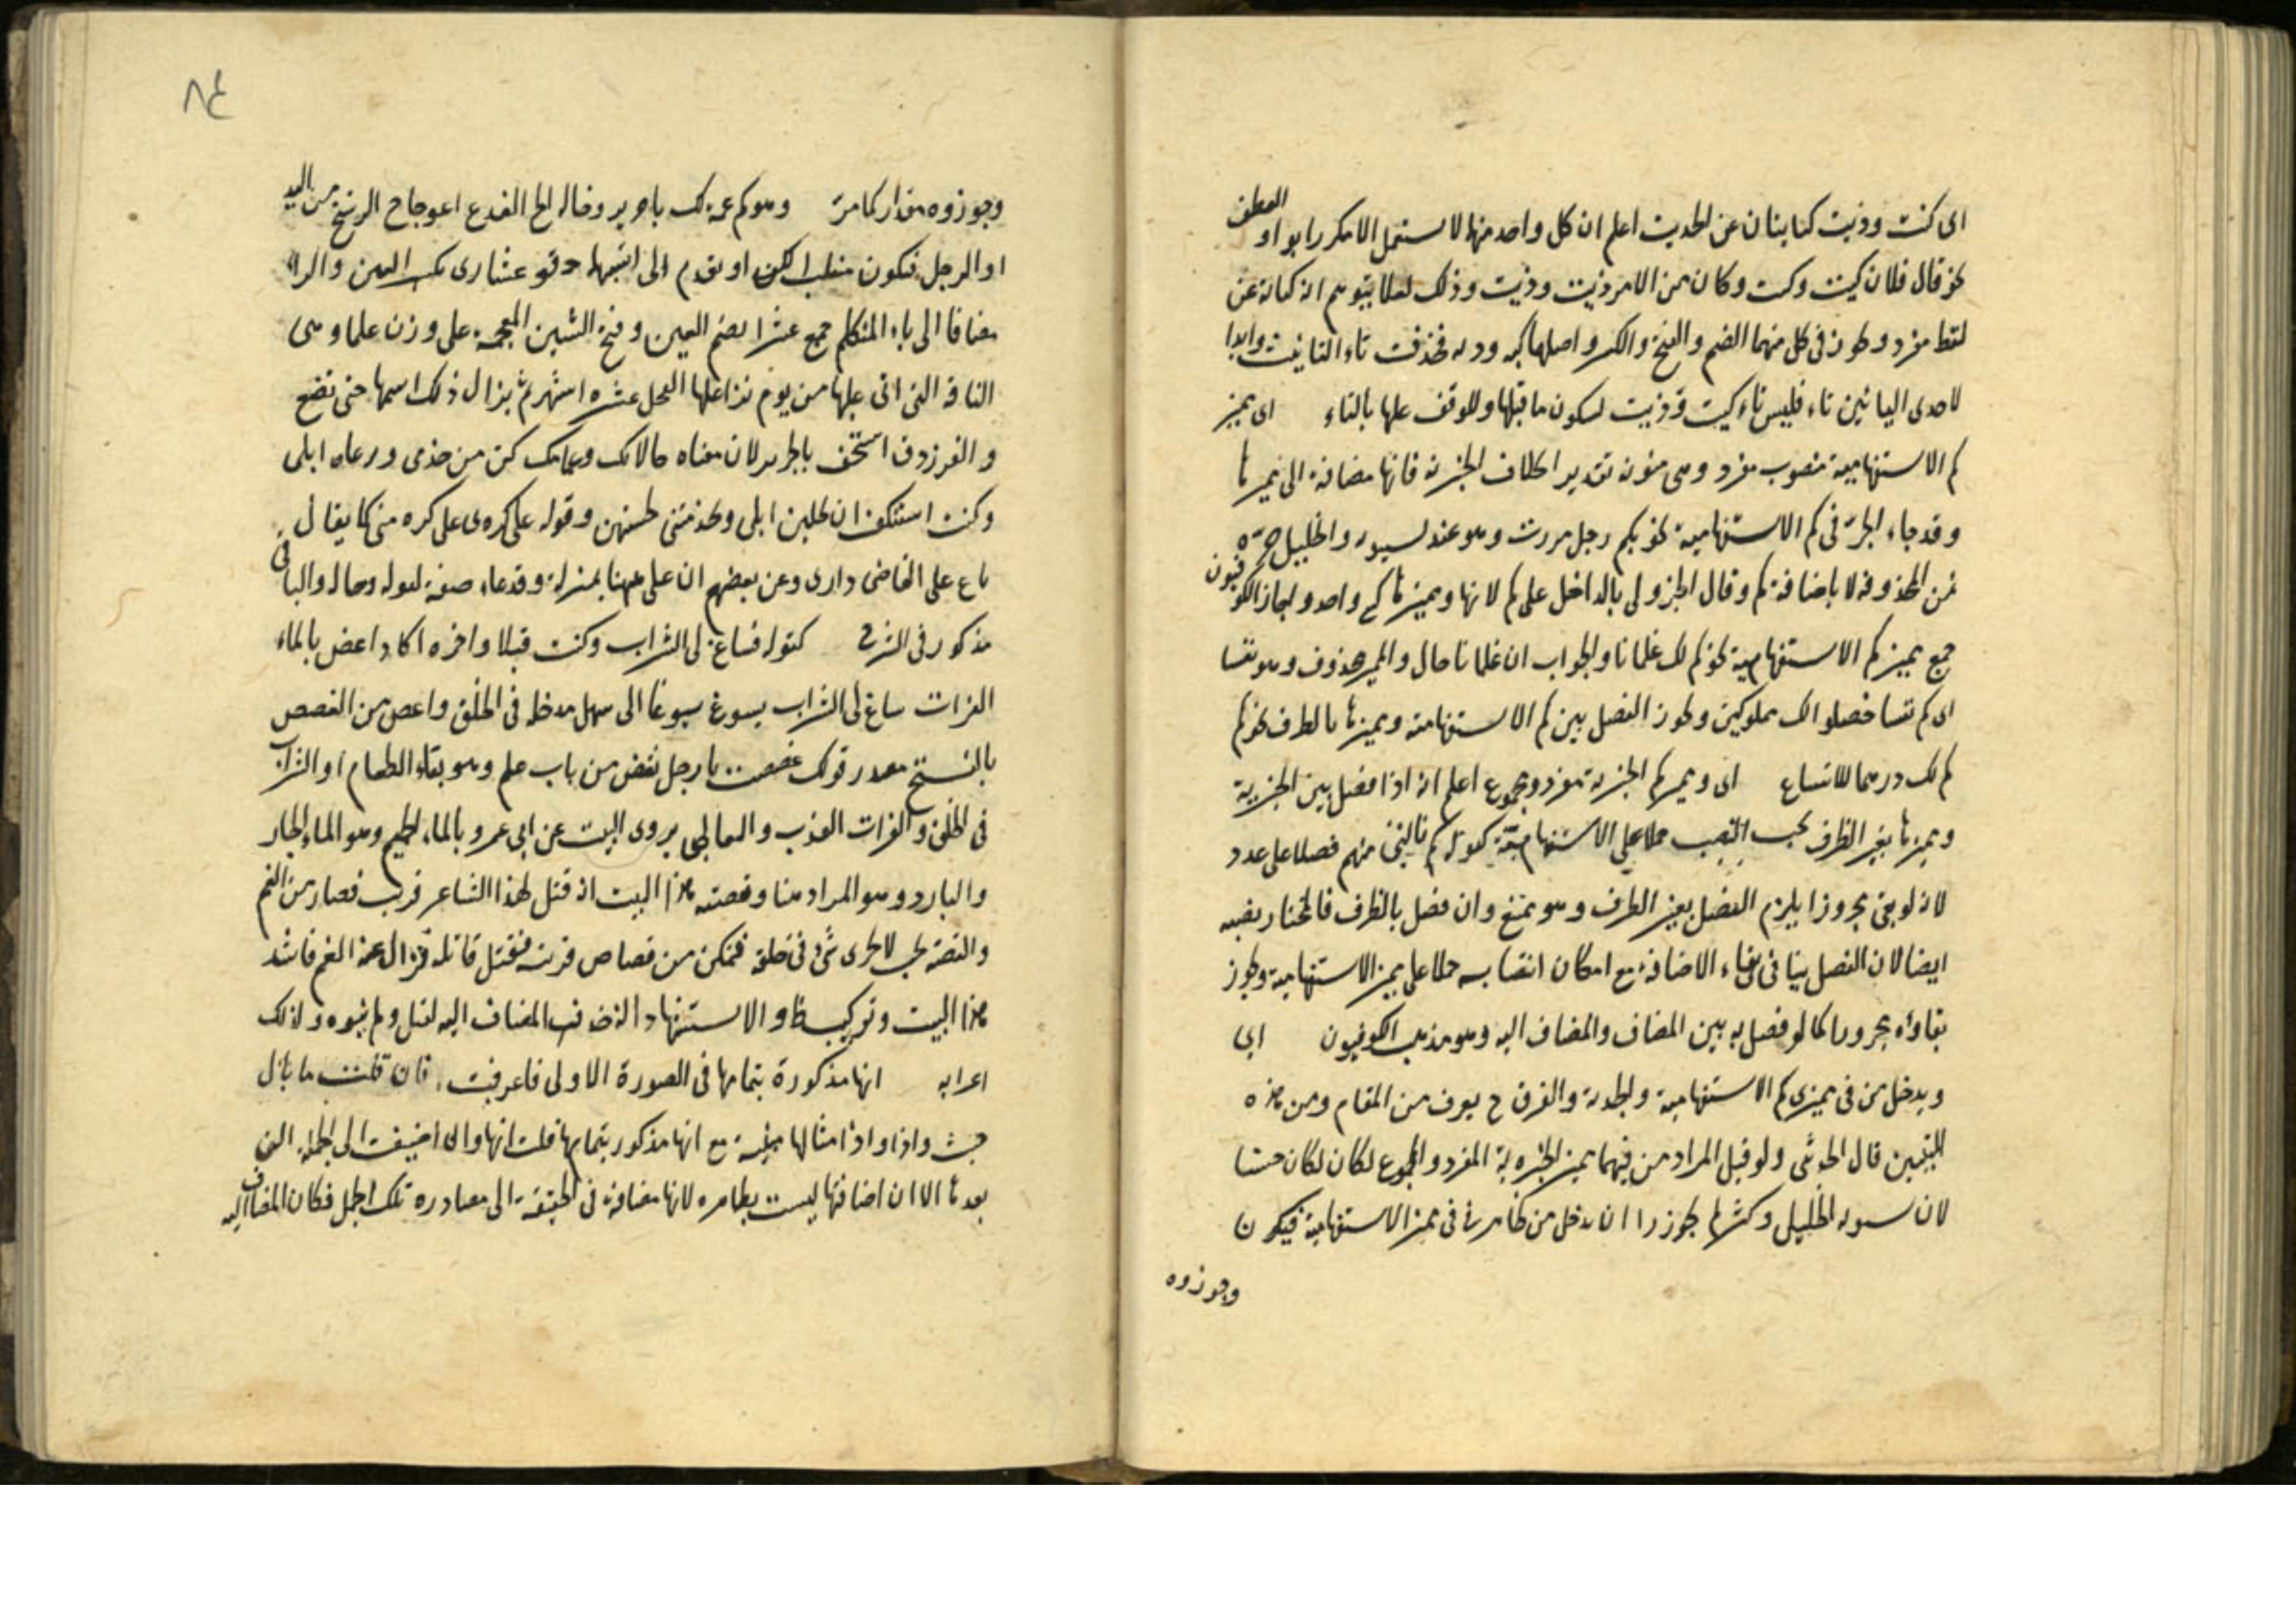 اى كنت وذيت كنايتان عن الحديث اعلم ان كل واحد منها لا يستعمل الا مكررا بواو العطف
نحو قال فلان كيت وكيت وكان من الامر ذيت وذيت وذلك لئلا يتوهم انه كناية عن
لفظ مفرد ويجوز فى كل منهما الضم والفتح والكسر واصلها كيه وذيه فحذفت تاء التانيث وابدا
لاحدى اليائين تاء فليس تاء كيت وذيت لسكون ما قبلها وللوقف عليها بالتاء اى مميز
كم الاستفهامية منصوب مفرد وهى منونة تقديرا بخلاف الخبرية فانها مضافة الى مميزها
وقد جاء الجر فى كم الاستفهامية نحو بكم رجل مررت وهو عند سيبويه والخليل جره
بمن المحذوفة لا باضافة كم وقال الجزولى بالداخل على كم لانها ومميزها كشئ واحد واجاز الكوفيون
جمع مميز كم الاستفهامية نحو كم لك غلمانا والجواب ان غلمانا حال والمميز محذوف وهو نفسا
اى كم نفسا حصلوا لك مملوكين ويجوز الفصل بين كم الاستفهامية ومميزها بالظرف نحو كم
كم لك درهما للاتساع اى ومميز كم الخبرية مفرد ومجموع اعلم انه اذا فصل بين الخبرية
ومميزها بغير الظرف يجب النصب حملا على الاستفهامية كقوله كم نالنى منهم فضلا على عدد
لانه لو بقى مجرورا يلزم الفصل بغير الظرف وهو ممتنع وان فصل بالظرف فالمختار نصبه
ايضا لان الفصل ينافى بقاء الاضافة مع امكان انتصابه حملا على مميز الاستفهامية ويجوز
بقاؤه مجرورا كما لو فصل به بين المضاف والمضاف اليه وهو مذهب الكوفيون اى
ويدخل من فى مميزى كم الاستفهامية والخبرية والفرق ح يعرف من المقام ومن هذه
للتبيين قال الحديثى ولو قيل المراد من فيهما مميز الخبرية المفرد والمجموع لكان لكان حسنا
لان سيبويه الخليل وكثيرا لم يجوزوا ان يدخل من ظاهرة فى مميز الاستفهامية فيكون
وجوزوه
٨٤
وجوزوه مقدار كما مر وهو كم عمة لك يا جرير وخالة الخ الفدع اعوجاج الرسغ من اليد
او الرجل فيكون منقلب الكف او القدم الى انسيها وقوله عشارى بكسر العين والراء
مضافا الى ياء المتكلم جمع عشرا بضم العين وفتح الشين المعجمة على وزن علماء وهى
الناقة التى اتى عليها من يوم نزا عليها الفحل عشرة اشهر ثم يزال ذلك اسمها حتى تضع
والفرزدق استخف بالجرير لان معناه خالاتك وعماتك كن من خدمى ورعاة ابلى
وكنت استنكف ان يحلبن ابلى ويخدمننى لخستهن وقوله على كره اى على كره منى كما يقال
باع على القاضى دارى وعن بعضهم ان على ههنا بمنزلة وفدعاء صفة لعمة وخالة والباقى
مذكور فى الشرح كقوله فساغ لى الشراب وكنت قبلا واخره اكاد اغص بالماء
الفرات ساغ لى الشراب يسوغ سوغا اى سهل مدخله فى الحلق واغص من الغصص
بالفتح مصدر قولك غصصت يا رجل تغص من باب علم وهو بقاء الطعام او الشراب
فى الحلق والفرات العذب والثعالبى يروى البيت عن ابى عمرو بالماء الحميم وهو الماء الحار
والبارد وهو المراد هنا وقصته هذا البيت انه قتل لهذا الشاعر قريب فصار من الغم
والغصة بحيث لا يجرى شئ فى حلقه فتمكن من قصاص قريبه فقتل قاتله فزال عنه الغم فانشد
هذا البيت وتركيب والاستشهاد انه حذف المضاف اليه لقبل ولم ينوه ولذلك
اعرابه انها مذكورة بتمامها فى الصورة الاولى فاعرفت فان قلت ما بال
حيث واذا واذ امثالها مبنية مع انها مذكور بتمامها قلت انها وان اضيفت الى الجملة التى
بعدها الا ان اضافتها ليست بظاهرة لانها مضافة فى الحقيقة الى مصادر تلك الجمل فكان المضاف اليه